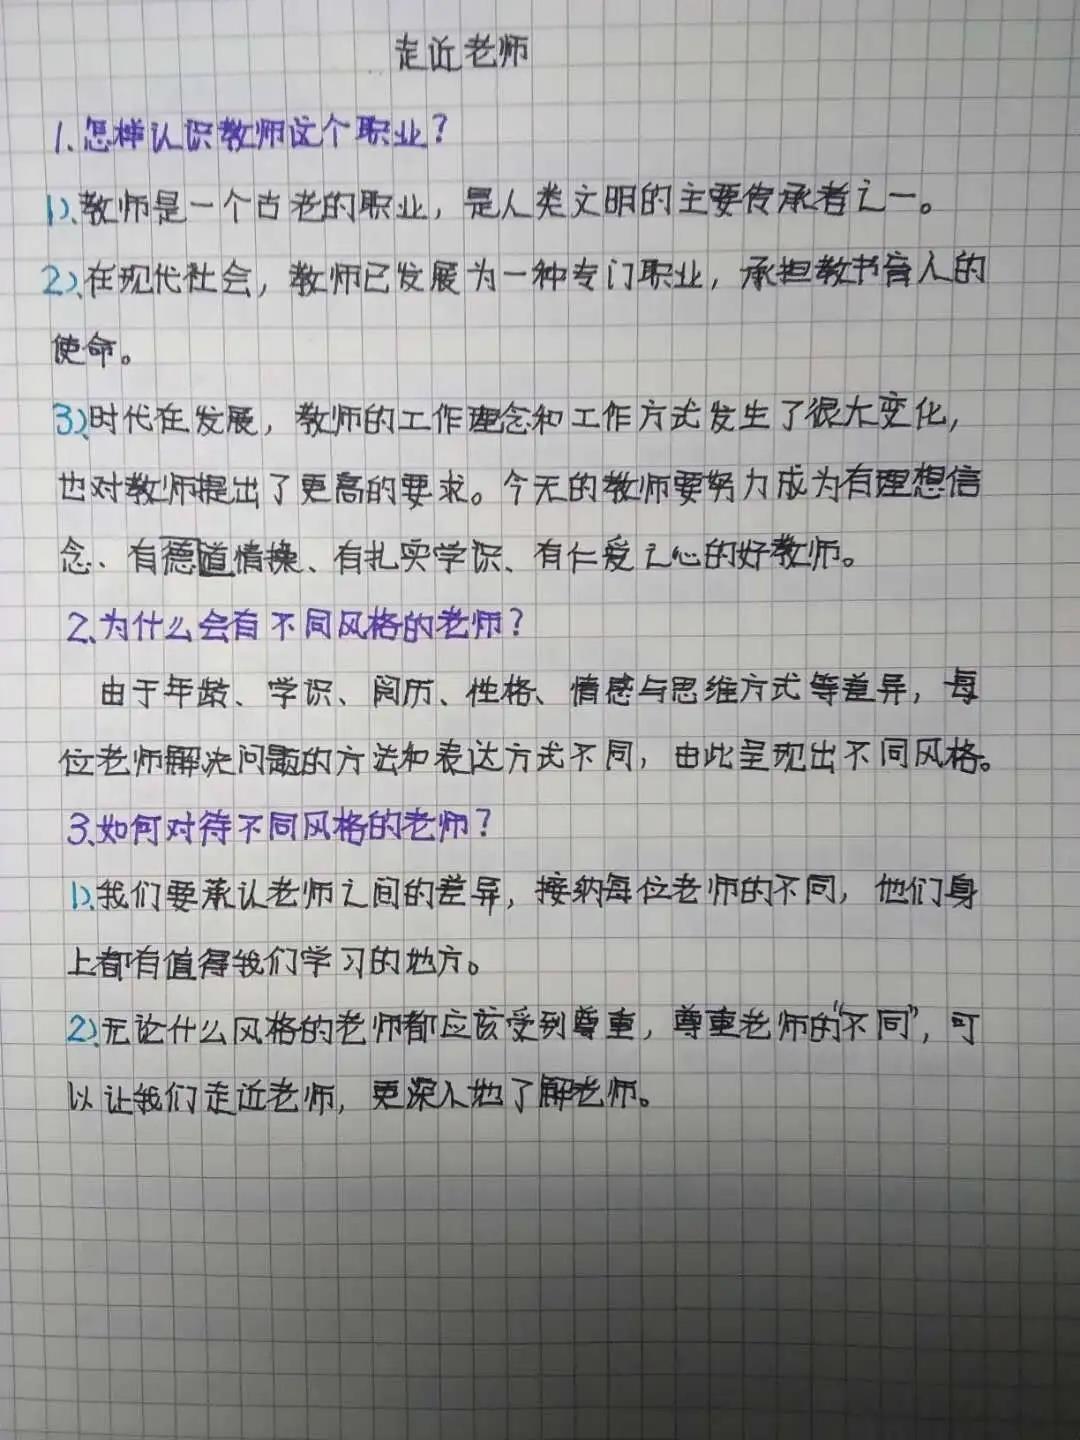 走近老师
1.怎样认识教师这个职业?
1)、教师是一个古老的职业，是人类文明的主要传承者之一。
2)、在现代社会，教师已发展为一种专门职业，承担教书育人的
使命。
3)、时代在发展，教师的工作理念和工作方式发生了很大变化，
也对教师提出了更高的要求。今天的教师要努力成为有理想信
念、有德道情操、有扎实学识、有仁爱之心的好教师。
2、为什么会有不同风格的老师?
由于年龄、学识、阅历、性格、情感与思维方式等差异，每
位老师解决问题的方法和表达方式不同，由此呈现出不同风格。
3、如何对待不同风格的老师?
1)、我们要承认老师之间的差异，接纳每位老师的不同，他们身
上都有值得我们学习的地方。
2)、无论什么风格的老师都应该受到尊重，尊重老师的"不同"，可
以让我们走近老师，更深入地了解老师。